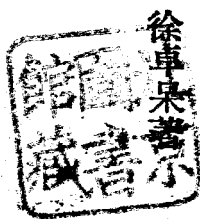 徐卓呆著
圖書
館藏